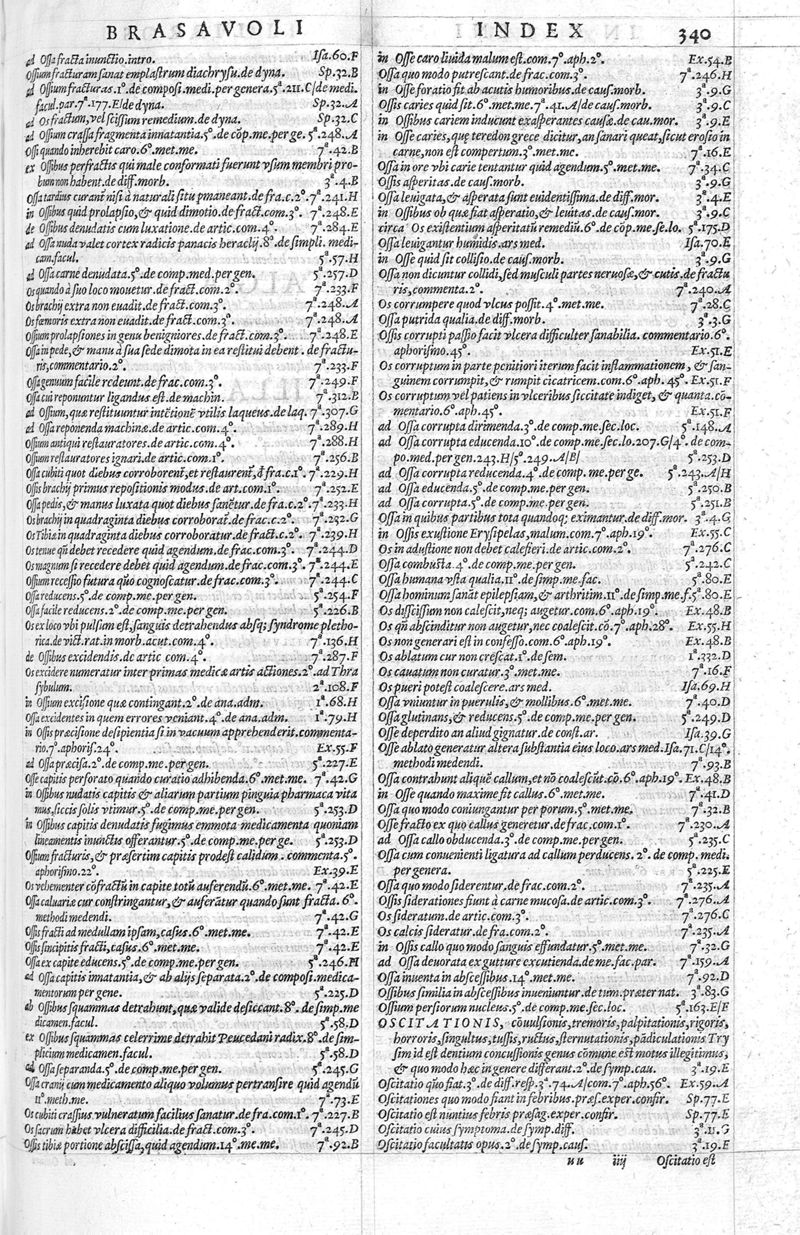 BRASAVOLI
ad Ossa fracta inunctio. intro. Isa.60.F
Ossium fracturam sanat emplastrum diachrysu. de dyna. Sp.32.B
ad Ossium fracturas.1º.de composi.medi per genera.5ª.211.C/de medi.
facul.par.7ª.177.E/de dyna. Sp.32.A
ad Os fractum, vel scissium remedium. de dyna. Sp.32.C
ad Ossium crassa fragmenta innatantia.5º.de cōp.me.per ge. 5ª.248.A
Ossi quando inherebit caro.6º.met.me. 7ª.42.B
ex Ossibus perfractis qui male conformati fuerunt vsum membri pro-
bum non habent.de diff.morb. 3ª.4.B
Ossa tardius curant nisi à naturali situ pmaneant.de fra.c.2º. 7ª.241.H
in Ossibus quid prolapsio, & quid dimotio.de fract.com.3º. 7ª.248.E
de Ossibus denudatis cum luxatione.de artic.com.4º. 7ª.284.E
ad Ossa nuda valet cortex radicis panacis heraclij.8º.de simpli.medi-
cam.facul. 5ª.57.H
ad Ossa carne denudata.5º.de comp.med.per gen. 5ª.257.D
Os quando à suo loco mouetur.de fract.com.2º. 7ª.233.F
Os brachij extra non euadit.de fract.com.3º. 7ª.248.A
Os femoris extra non euadit.de fract.com.3º. 7ª.248.A
Ossium prolapsiones in genu benigniores.de fract.com.3º. 7ª.248.E
Ossa in pede, & manu à sua sede dimota in ea restitui debent.de fractu-
ris, commentario.2º. 7ª.233.F
Ossa genuum facile redeunt.de frac.com.3º. 7ª.249.F
Ossa cui reponuntur ligandus est.de machin. 7ª.312.B
ad Ossium, quæ restituuntur intētionē vtilis laqueus.de laq. 7ª.307.G
ad Ossa reponenda machinæ.de artic.com.4º. 7ª.289.H
Ossium antiqui restauratores.de artic.com.4º. 7ª.288.H
Ossium restauratores ignari.de artic.com.1º. 7ª.256.B
Ossa cubiti quot diebus corroborent, et restaurent, d fra.c.1º. 7ª.229.H
Ossis brachij primus repositionis modus.de art.com.1º. 7ª.252.E
Ossa pedis, & manus luxata quot diebus sanētur.de fra.c.2º. 7ª.233.H
Os brachij in quadraginta diebus corroborat.de frac.c.2º. 7ª.232.G
Os Tibia in quadraginta diebus corroboratur.de fract.c.2º. 7ª.239.H
Os tenue qñ debet recedere quid agendum.de frac.com.3º. 7ª.244.D
Os magnum si recedere debet quid agendum.de frac.com.3º. 7ª.244.E
Ossium recessio futura quō cognoscatur.de frac.com.3º. 7ª.244.C
Ossa reducens.5º.de comp.me.per gen. 5ª.254.F
Ossa facile reducens.2º.de comp.me.per gen. 5ª.226.B
Os ex loco vbi pulsum est, sanguis detrahendus absq; syndrome pletho-
rica.de vict.rat.in morb.acut.com.4º. 7ª.136.H
de Ossibus excidendis.de artic com.4º. 7ª.287.F
Os excidere numeratur inter primas medicæ artis actiones.2º.ad Thra
sybulum. 2ª.108.F
in Ossium excisione quæ contingant.2º.de ana.adm. 1ª.68.H
Ossa excidentes in quem errores veniant.4º.de ana.adm. 1ª.79.H
in Ossis præcisione desipientia si in vacuum apprehenderit.commenta-
rio.7º.aphoris.24º. Ex.55.F
ad Ossa præcisa.2º.de comp.me.per gen. 5ª.227.E
Osse capitis perforato quando curatio adhibenda.6º.met.me. 7ª.42.G
in Ossibus nudatis capitis & aliarum partium pinguia pharmaca vita
mus, siccis solis vtimur.5º.de comp.me.per gen. 5ª.253.D
in Ossibus capitis denudatis fugimus emmota medicamenta quoniam
lineamentis inunctis offerantur.5º.de comp.me.per ge. 5ª.253.D
Ossium fracturis, & præsertim capitis prodest calidum.commenta.5º.
aphorismo.22º. Ex.39.E
Os vehementer cōfractū in capite totū auferendū.6º.met.me. 7ª.42.E
Ossa caluariæ cur constringantur, & auferātur quando sunt fracta. 6º.
methodi medendi. 7ª.42.G
Ossis fracti ad medullam ipsam, casus.6º.met.me. 7ª.42.E
Ossis sincipitis fracti, casus.6º.met.me. 7ª.42.E
Ossa ex capite educens.5º.de comp.me.per gen. 5ª.246.H
ad Ossa capitis innatantia, & ab alijs separata.2º.de composi.medica-
mentorum per gene. 5ª.225.D
ab Ossibus squammas detrahunt, quæ valide desiccant.8º.de simp.me
dicamen.facul. 5ª.58.D
ex Ossibus squammas celerrime detrahit Peucedani radix.8º.de sim-
plicium medicamen.facul. 5ª.58.D
ad Ossa separanda.5º.de comp.me.per gen. 5ª.245.G
Ossa cranij cum medicamento aliquo volumus pertransire quid agendū
11º.meth.me. 7ª.73.E
Os cubiti crassius vulneratum facilius sanatur.de fra.com.1º. 7ª.227.B
Os sacrum habet vlcera difficilia.de fract.com.3º. 7ª.245.D
Ossis tibiæ portione abscissa, quid agendum.14º.me.me. 7ª.92.B
INDEX 340
in Osse caro liuida malum est.com.7º.aph.2º. Ex.54.B
Ossa quo modo putrescant.de frac.com.3º. 7ª.246.H
in Osse foratio fit ab acutis humoribus.de caus.morb. 3ª.9.G
Ossis caries quid sit.6º.met.me.7ª.41.A/de caus.morb. 3ª.9.C
in Ossibus cariem inducunt exasperantes causæ.de cau.mor. 3ª.9.E
in Osse caries, quæ teredon grece dicitur, an sanari queat, sicut erosio in
carne, non est compertum.3º.met.me. 7ª.16.E
Ossa in ore vbi carie tentantur quid agendum.5º.met.me. 7ª.34.C
Ossis asperitas.de caus.morb. 3ª.9.G
Ossa leuigata, & asperata sunt euidentissima.de diff.mor. 3ª.4.E
in Ossibus ob quæ fiat asperatio, & leuitas.de caus.mor. 3ª.9.C
circa Os existentium asperitatū remediū.6º.de cōp.me.se.lo. 5ª.175.D
Ossa leuigantur humidis.ars med. Isa.70.E
in Osse quid sit collisio.de caus.morb. 3ª.9.G
Ossa non dicuntur collidi, sed musculi partes neruosæ, & cutis.de fractu
ris, commenta.2º. 7ª.240.A
Os corrumpere quod vlcus possit.4º.met.me. 7ª.28.C
Ossa putrida qualia.de diff.morb. 3ª.3.G
Ossis corrupti passio facit vlcera difficulter sanabilia. commentario.6º.
aphorismo.45º. Ex.51.E
Os corruptum in parte penitiori iterum facit inflammationem, & san-
guinem corrumpit, & rumpit cicatricem.com.6º.aph.45º. Ex.51.F
Os corruptum vel patiens in vlceribus siccitate indiget, & quanta.cō-
mentario.6º.aph.45º. Ex.51.F
ad Ossa corrupta dirimenda.3º.de comp.me.sec.loc. 5ª.148.A
ad Ossa corrupta educenda.10º.de comp.me.sec.lo.207.G/4º.de com-
po.med.per gen.243.H/5º.249.A/B/ 5ª.253.D
ad Ossa corrupta reducenda.4º.de comp.me.per ge. 5ª.243.A/H
ad Ossa educenda.5º.de comp.me.per gen. 5ª.250.B
ad Ossa corrupta.5º.de comp.me.per gen. 5ª.251.B
Ossa in quibus partibus tota quandoq; eximantur.de diff.mor. 3ª.4.G
in Ossis exustione Erysipelas, malum.com.7º.aph.19º. Ex.55.C
Os in adustione non debet calefieri.de artic.com.2º. 7ª.276.C
Ossa combusta.4º.de comp.me.per gen. 5ª.242.C
Ossa humana vsta qualia.11º.de simp.me.fac. 5ª.80.E
Ossa hominum sanāt epilepsiam, & arthritim.11º.de simp.me.f.5ª.80.E
Os discissium non calescit, neq; augetur.com.6º.aph.19º. Ex.48.B
Os qñ abscinditur non augetur, nec coalescit.cō.7º.aph.28º. Ex.55.H
Os non generari est in confesso.com.6º.aph.19º. Ex.48.B
Os ablatum cur non crescat.1º.de sem. 1ª.332.D
Os cauatum non curatur.3º.met.me. 7ª.16.F
Os pueri potest coalescere.ars med. Isa.69.H
Ossa vniuntur in puerulis, & mollibus.6º.met.me. 7ª.40.D
Ossa glutinans, & reducens.5º.de comp.me.per gen. 5ª.249.D
Osse deperdito an aliud gignatur.de const.ar. Isa.39.G
Osse ablato generatur altera substantia eius loco.ars med.Isa.71.C/14º.
methodi medendi. 7ª.93.B
Ossa contrahunt aliquē callum, et nō coalescūt.cō.6º.aph.19º. Ex.48.B
in Osse quando maxime fit callus.6º.met.me. 7ª.41.D
Ossa quo modo coniungantur per porum.5º.met.me. 7ª.32.B
Osse fracto ex quo callus generetur.de frac.com.1º. 7ª.230.A
ad Ossa callo obducenda.3º.de comp.me.per gen. 5ª.235.C
Ossa cum conuenienti ligatura ad callum perducens.2º.de comp.medi.
per genera. 5ª.225.E
Ossa quo modo siderentur.de frac.com.2º. 7ª.235.A
Ossis siderationes fiunt à carne mucosa.de artic.com.3º. 7ª.276.A
Os sideratum.de artic.com.3º. 7ª.276.C
Os calcis sideratur.de fra.com.2º. 7ª.235.A
in Ossis callo quo modo sanguis effundatur.5º.met.me. 7ª.32.G
ad Ossa deuorata ex gutture excutienda.de me.fac.par. 7ª.159.A
Ossa inuenta in abscessibus.14º.met.me. 7ª.92.D
Ossibus similia in abscessibus inueniuntur.de tum.præter nat. 3ª.83.G
Ossium persiorum nucleus.5º.de comp.me.sec.loc. 5ª.163.E/F
OSCITATIONIS, cōuulsionis, tremoris, palpitationis, rigoris,
horroris, singultus, tussis, ructus, sternutationis, pādiculationis Try
sim id est dentium concussionis genus cōmune est motus illegitimus,
& quo modo hæc in genere differant.2º.de symp.cau. 3ª.19.E
Oscitatio quō fiat.3º.de diff.resp.3ª.74.A/com.7º.aph.56º. Ex.59.A
Oscitationes quo modo fiant in febribus.præs.exper.confir. Sp.77.E
Oscitatio est nuntius febris præsag.exper.confir. Sp.77.E
Oscitatio cuius symptoma.de symp.diff. 3ª.11.G
Oscitatio facultatis opus.2º.de symp.caus. 3ª.19.E
uu iiij Oscitatio est